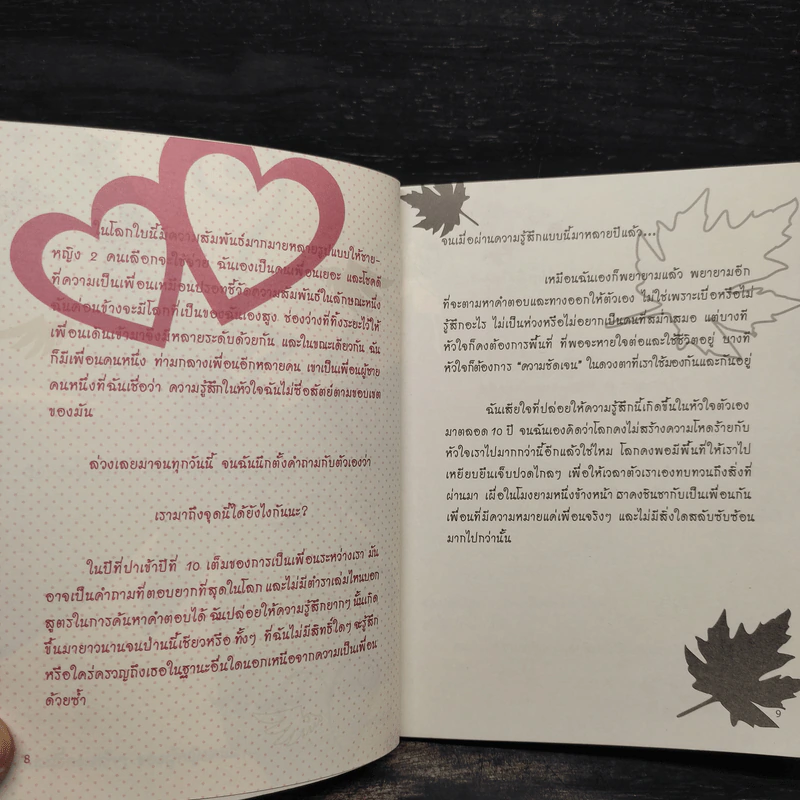 ในโลกใบนี้มีความสัมพันธ์มากมายหลายรูปแบบให้ชาย-
หญิง 2 คนเลือกจะใช้ง่าย ฉันเองเป็นคนเพื่อนเยอะ และโชคดี
ที่ความเป็นเพื่อนเหมือนปรอทชี้วัดความสัมพันธ์ในลักษณะหนึ่ง
ฉันค่อนข้างจะมีโลกที่เป็นของฉันเองสูง ช่องว่างที่ทิ้งระยะไว้ให้
เพื่อนเดินเข้ามาจึงมีหลายระดับด้วยกัน และในขณะเดียวกัน ฉัน
ก็มีเพื่อนคนหนึ่ง ท่ามกลางเพื่อนอีกหลายคน เขาเป็นเพื่อนผู้ชาย
คนหนึ่งที่ฉันเชื่อว่า ความรู้สึกในหัวใจฉันไม่ซื่อสัตย์ตามขอบเขต
ของมัน
ล่วงเลยมาจนทุกวันนี้ จนฉันนึกตั้งคำถามกับตัวเองว่า
เรามาถึงจุดนี้ได้ยังไงกันนะ?
ในปีที่ปาเข้าปีที่ 10 เต็มของการเป็นเพื่อนระหว่างเรา มัน
อาจเป็นคำถามที่ตอบยากที่สุดในโลก และไม่มีตำราเล่มไหนบอก
สูตรในการค้นหาคำตอบได้ ฉันปล่อยให้ความรู้สึกยากๆ นั้นเกิด
ขึ้นมายาวนานจนป่านนี้เชียวหรือ ทั้งๆ ที่ฉันไม่มีสิทธิ์ใดๆ จะรู้สึก
หรือใคร่ครวญถึงเธอในฐานะอื่นใดนอกเหนือจากความเป็นเพื่อน
ด้วยซ้ำ
8
จนเมื่อผ่านความรู้สึกแบบนี้มาหลายปีแล้ว...
เหมือนฉันเองก็พยายามแล้ว พยายามอีก
ที่จะตามหาคำตอบและทางออกให้ตัวเอง ไม่ใช่เพราะเบื่อหรือไม่
รู้สึกอะไร ไม่เป็นห่วงหรือไม่อยากเป็นคนที่สม่ำเสมอ แต่บางที
หัวใจก็คงต้องการพื้นที่ ที่พอจะหายใจต่อและใช้ชีวิตอยู่ บางที
หัวใจก็ต้องการ "ความชัดเจน" ในดวงตาที่เราใช้มองกันและกันอยู่
ฉันเสียใจที่ปล่อยให้ความรู้สึกนี้เกิดขึ้นในหัวใจตัวเอง
มาตลอด 10 ปี จนฉันเองคิดว่าโลกคงไม่สร้างความโหดร้ายกับ
หัวใจเราไปมากกว่านี้อีกแล้วใช่ไหม โลกคงพอมีพื้นที่ให้เราไป
เหยียบยืนเจ็บปวดไกลๆ เพื่อให้เวลาตัวเราเองทบทวนถึงสิ่งที่
ผ่านมา เผื่อในโมงยามหนึ่งข้างหน้า เราคงชินชากับเป็นเพื่อนกัน
เพื่อนที่มีความหมายแค่เพื่อนจริงๆ และไม่มีสิ่งใดสลับซับซ้อน
มากไปกว่านั้น
9